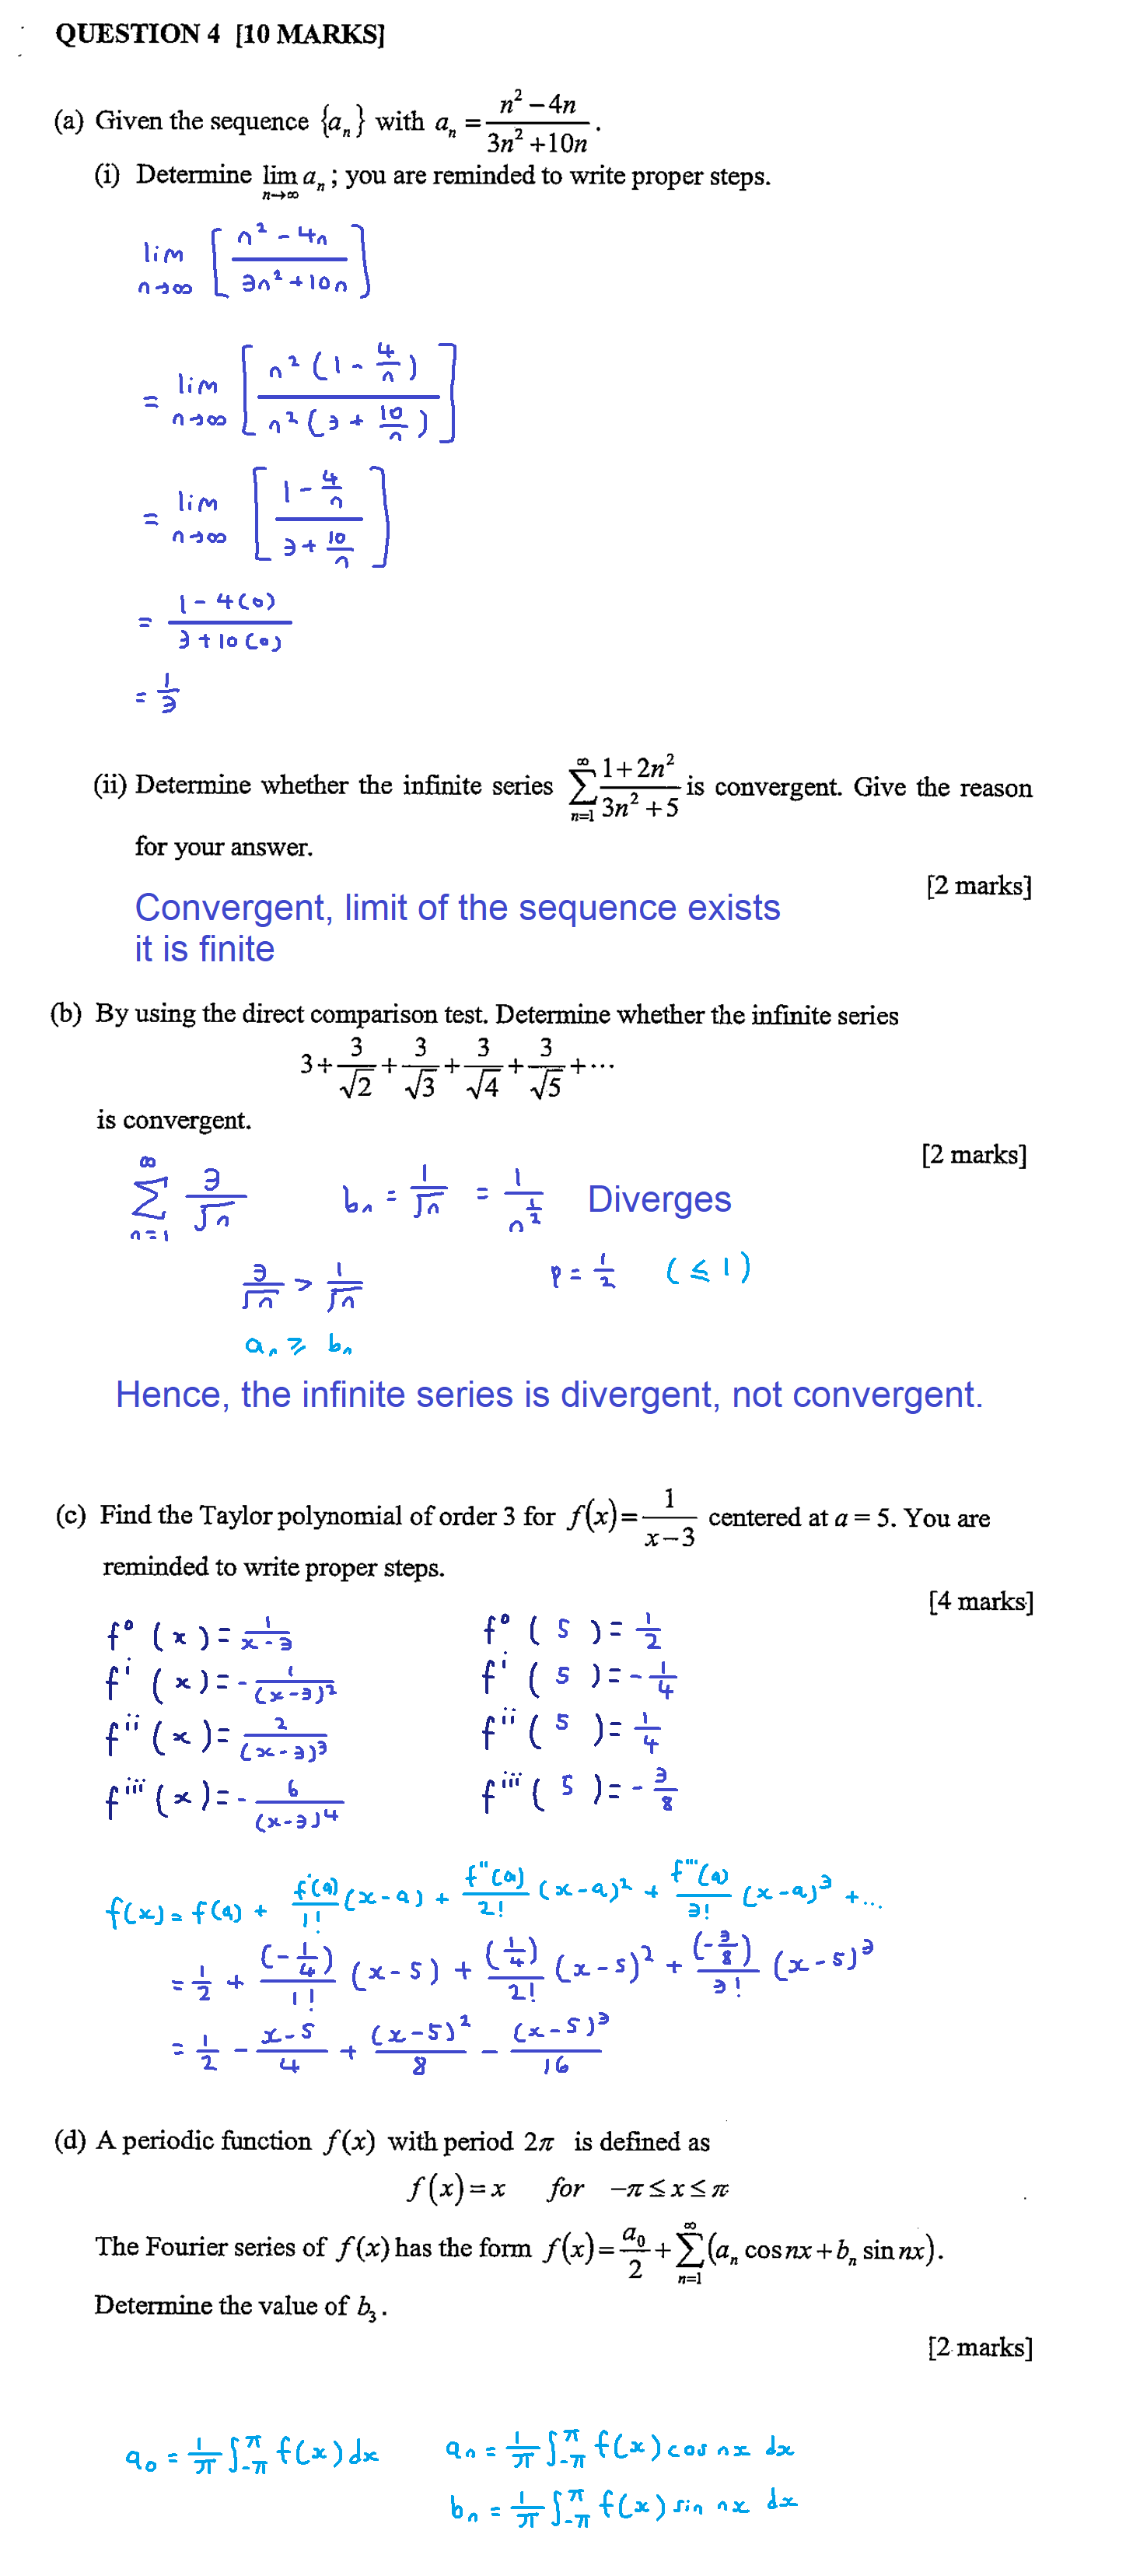 QUESTION 4 [10 MARKS]
(a) Given the sequence {aₙ} with aₙ = (n² − 4n)/(3n² + 10n).
(i) Determine lim n→∞ aₙ; you are reminded to write proper steps.
lim n→∞ [(n² - 4n)/(3n² + 10n)]
= lim n→∞ [n²(1 - 4/n)/n²(3 + 10/n)]
= lim n→∞ [(1 - 4/n)/(3 + 10/n)]
= (1 - 4(0))/(3 + 10(0))
= 1/3
(ii) Determine whether the infinite series ∑ n=1 ∞ (1+2n²)/(3n²+5) is convergent. Give the reason
for your answer.
[2 marks]
Convergent, limit of the sequence exists
it is finite
(b) By using the direct comparison test. Determine whether the infinite series
3 + 3/√2 + 3/√3 + 3/√4 + 3/√5 + ⋯
is convergent.
[2 marks]
∑ n=1 ∞ 3/√n bₙ = 1/√n = 1/n^(1/2) Diverges
3/√n > 1/√n p = 1/2 (≤ 1)
aₙ ≥ bₙ
Hence, the infinite series is divergent, not convergent.
(c) Find the Taylor polynomial of order 3 for f(x) = 1/(x−3) centered at a = 5. You are
reminded to write proper steps.
[4 marks]
f⁰(x) = 1/(x-3) f⁰(5) = 1/2
fⁱ(x) = -1/(x-3)² fⁱ(5) = -1/4
fⁱⁱ(x) = 2/(x-3)³ fⁱⁱ(5) = 1/4
fⁱⁱⁱ(x) = -6/(x-3)⁴ fⁱⁱⁱ(5) = -3/8
f(x) = f(a) + f'(a)/1! (x-a) + f''(a)/2! (x-a)² + f'''(a)/3! (x-a)³ + ...
= 1/2 + (-1/4)/1! (x-5) + (1/4)/2! (x-5)² + (-3/8)/3! (x-5)³
= 1/2 - (x-5)/4 + (x-5)²/8 - (x-5)³/16
(d) A periodic function f(x) with period 2π is defined as
f(x) = x for −π ≤ x ≤ π
The Fourier series of f(x) has the form f(x) = a₀/2 + ∑ n=1 ∞ (aₙ cos nx + bₙ sin nx).
Determine the value of b₃.
[2 marks]
a₀ = 1/π ∫_-π^π f(x) dx aₙ = 1/π ∫_-π^π f(x) cos nx dx
bₙ = 1/π ∫_-π^π f(x) sin nx dx